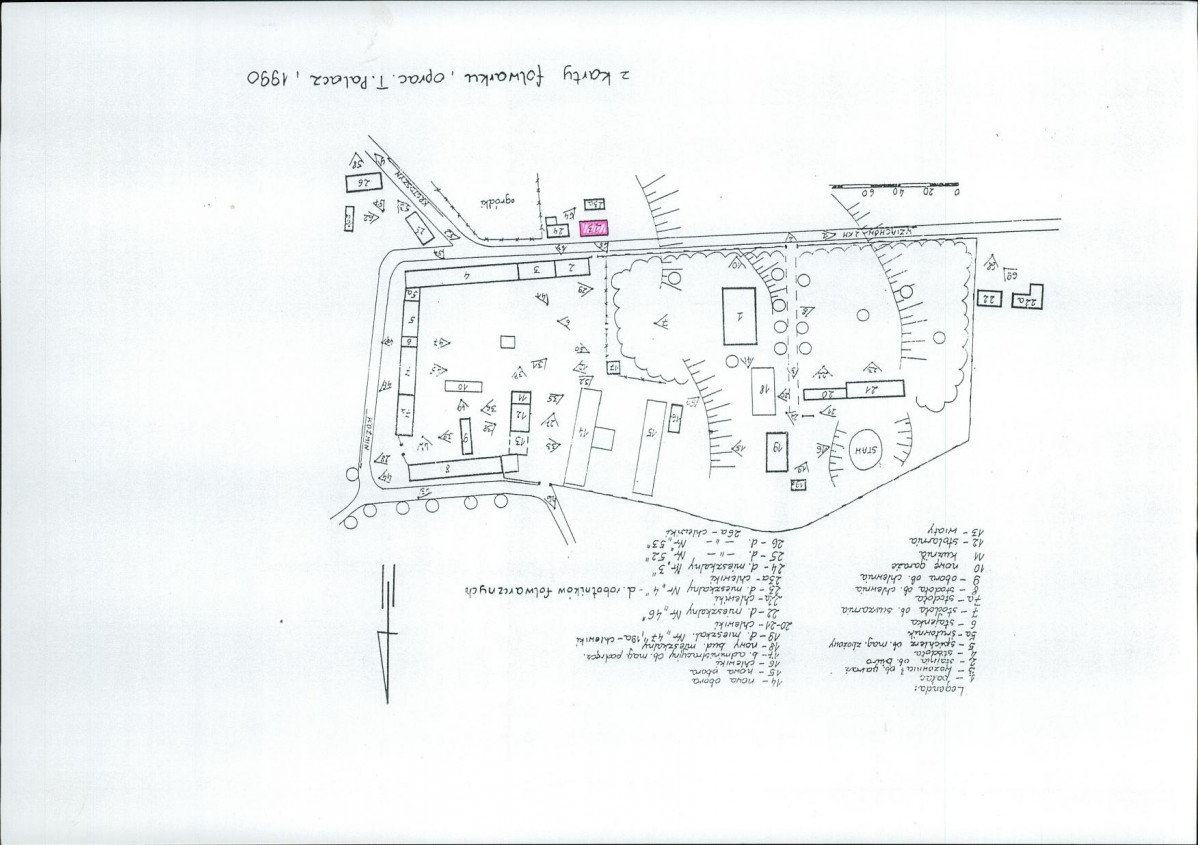 z karty folwarku, oprac. T. Pałacz, 1990
Legenda:
1 - pałac
2 - stajnia ob. biuro
4 - stodoła
5 - spichlerz ob. mag. zbożowy
5a - śrutownik
6 - stajenka
7 - stodoła ob. suszarnia
7a - stodoła
8 - stodoła ob. chlewnia
9 - obora ob. chlewnia
10 nowe garaże
11 kuźnia
12 - stolarnia
13 - wiaty
14 - nowa obora
15 - nowa obora
16 - chlewiki
17 - b. administracyjny ob. mag. podręcz.
18 - nowy bud. mieszkalny
19 - d. mieszkal. Nr „47", 19a - chlewiki
20-21 - chlewiki
22 - d. mieszkalny Nr „46"
22a - chlewiki
23 - d. mieszkalny Nr „4" - d. robotników folwarcznych
23a - chlewiki
24 - d. mieszkalny Nr „3"
25 - d. — „ — Nr „52"
26 - d. — „ — Nr „53"
26a - chlewiki
STAW
KOŹMIN
WZIĄCHÓW 2 KM
ogródki
0 20 40 60
1
2
3
4
5
5a
6
7
7a
8
9
10
11
12
13
14
15
16
17
18
19
19a
20
21
22
22a
23a
24
25
26